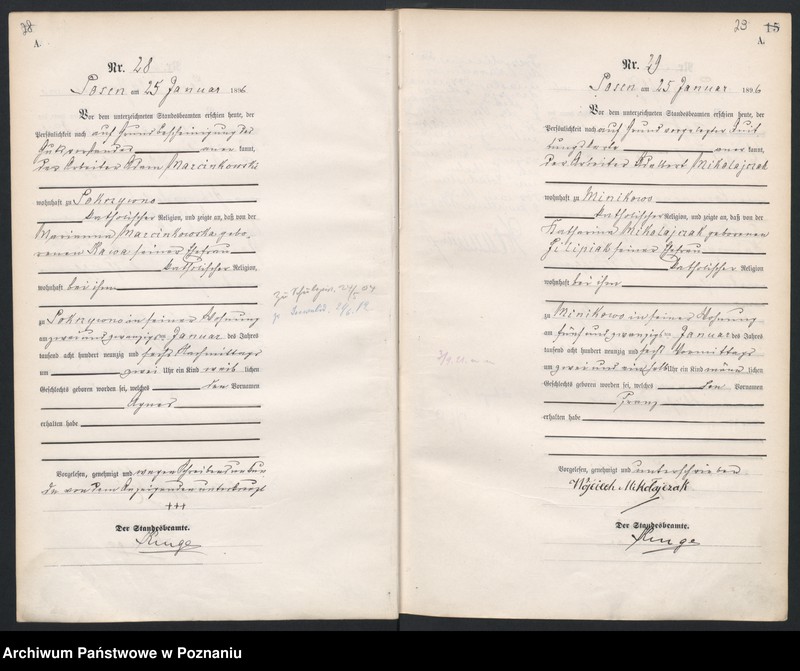 28
A.
Nr. 28
Posen am 25 Januar 1896
Vor dem unterzeichneten Standesbeamten erschien heute, der
Persönlichkeit nach auf Grund Bescheinigung des
Gutsvorstandes aner kannt,
der Arbeiter Adam Marcinkowski
wohnhaft zu Pokrzywno
katholischer Religion, und zeigte an, daß von der
Marianna Marcinkowska gebo-
renen Kawa seiner Ehefrau
katholischer Religion,
wohnhaft bei ihm
zu Pokrzywno in seiner Wohnung
am zwei und zwanzigsten Januar des Jahres
tausend acht hundert neunzig und sechs Nachmittags
um zwei Uhr ein Kind weib lichen
Geschlechts geboren worden sei, welches den Vornamen
Agnes
erhalten habe
Vorgelesen, genehmigt und wegen Schreibensunkun
de von dem Anzeigenden unterkreuzt
+++
Der Standesbeamte.
zu
29 15
A.
Nr. 29
Posen am 25 Januar 1896
Vor dem unterzeichneten Standesbeamten erschien heute, der
Persönlichkeit nach auf Grund vorgelegter Quit
tungskarte aner kannt,
der Arbeiter Adalbert Mikolajczak
wohnhaft zu Minikowo
katholischer Religion, und zeigte an, daß von der
Katharina Mikolajczak geborenen
Filipiak seiner Ehefrau
katholischer Religion,
wohnhaft bei ihm
zu Minikowo in seiner Wohnung
am fünf und zwanzigsten Januar des Jahres
tausend acht hundert neunzig und sechs Vormittags
um zwei und ein halb Uhr ein Kind männ lichen
Geschlechts geboren worden sei, welches den Vornamen
Franz
erhalten habe
Vorgelesen, genehmigt und unterschrieben
Wojciech Mikołajczak
Der Standesbeamte.
Archiwum Państwowe w Poznaniu